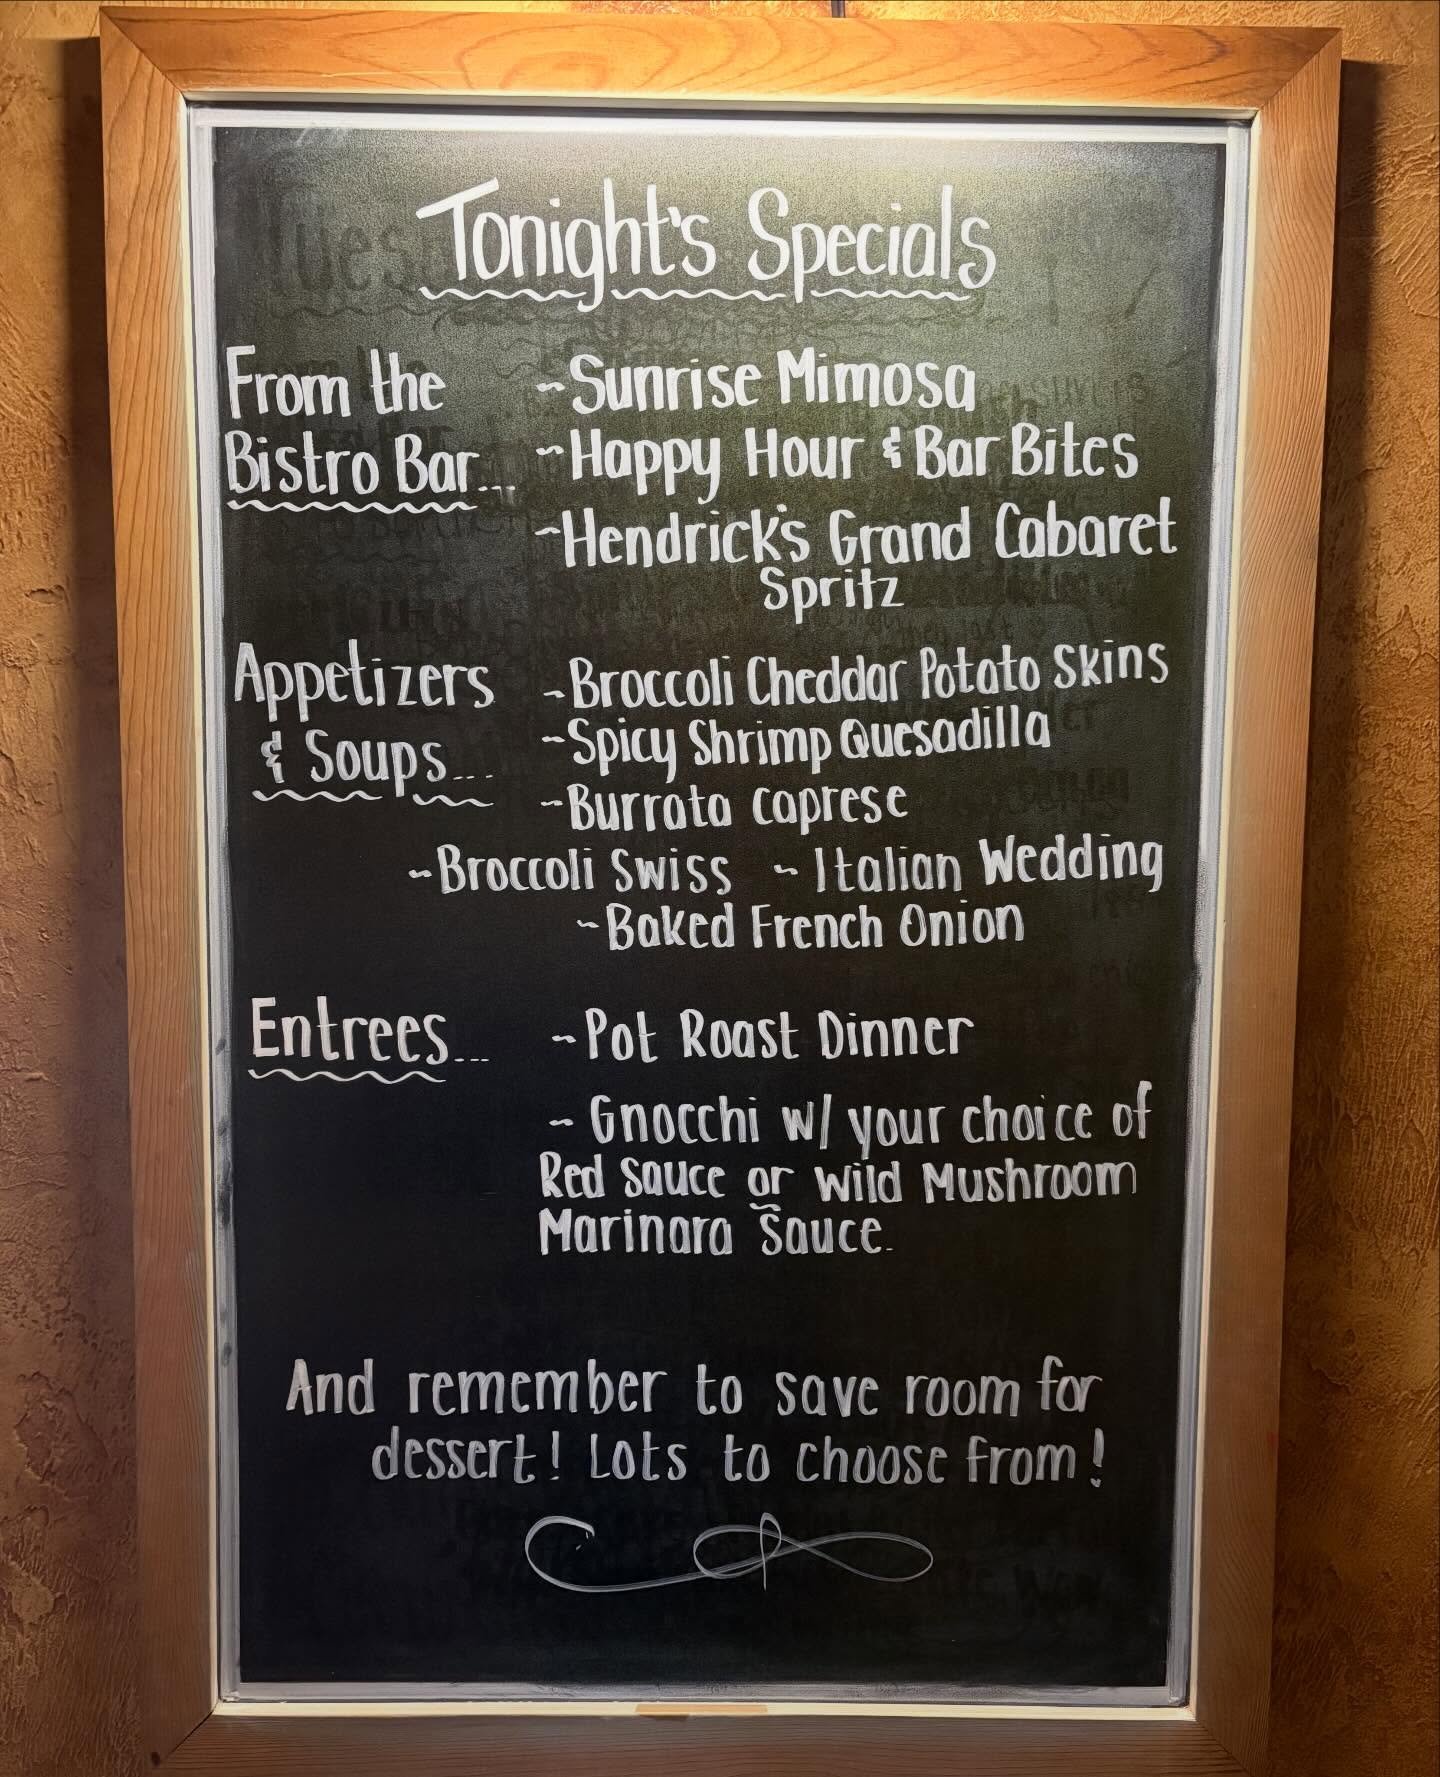 Tonight's Specials
From the
Bistro Bar...
~Sunrise Mimosa
~Happy Hour & Bar Bites
~Hendrick's Grand Cabaret
Spritz
Appetizers
& Soups...
~Broccoli Cheddar Potato Skins
~Spicy Shrimp Quesadilla
~Burrata Caprese
~Broccoli Swiss ~Italian Wedding
~Baked French Onion
Entrees...
~Pot Roast Dinner
~Gnocchi w/ your choice of
Red Sauce or Wild Mushroom
Marinara Sauce.
And remember to save room for
dessert! Lots to choose from!